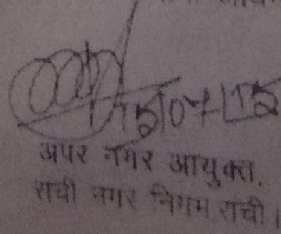 15/07/15
अपर नगर आयुक्त,
राची नगर निगम, राची।